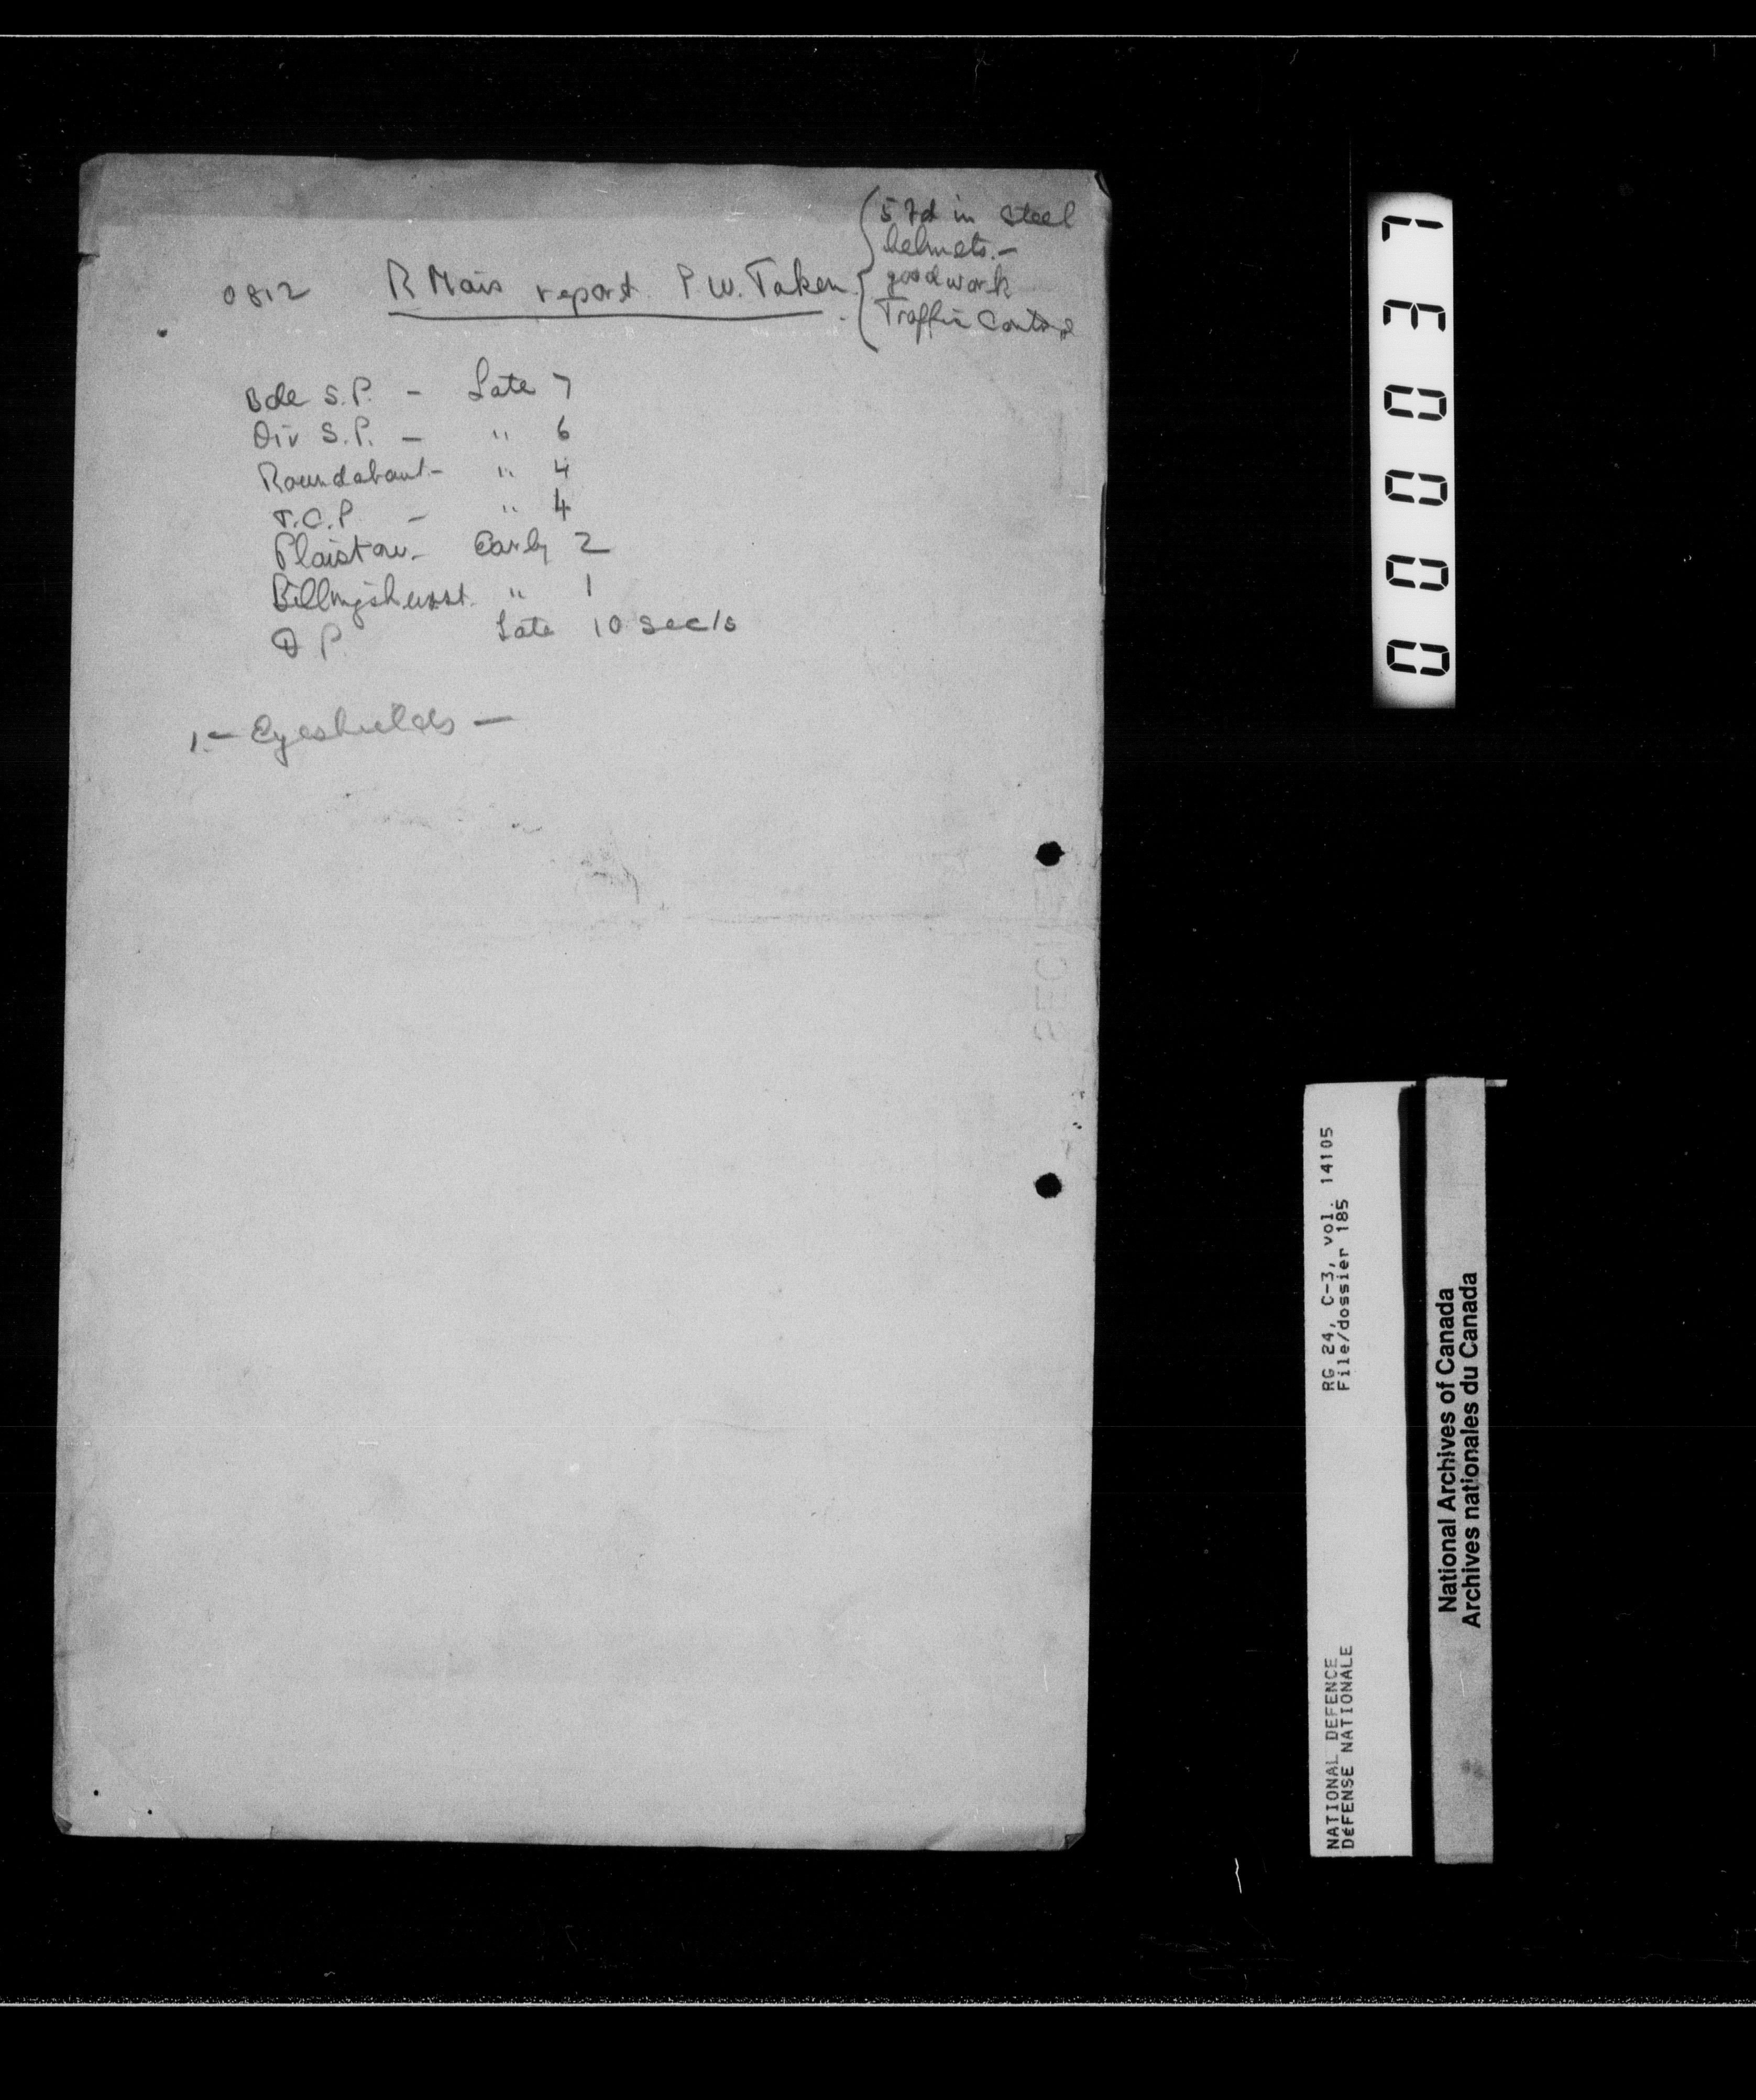 5 Fd in steel
helmets.-
good work
Traffic Control
0812 R Mais report. P.W. Taken
Bde S.P. - Late 7
Div S.P. - " 6
Roundabout - " 4
T.C.P. - " 4
Plaistow - Early 2
Billingshurst. " 1
D.P. Late 10 secs
1.- Eyeshields -
SECRET
000037
RG 24, C-3, vol. 14105
File/dossier 185
NATIONAL DEFENCE
DéFENSE NATIONALE
National Archives of Canada
Archives nationales du Canada